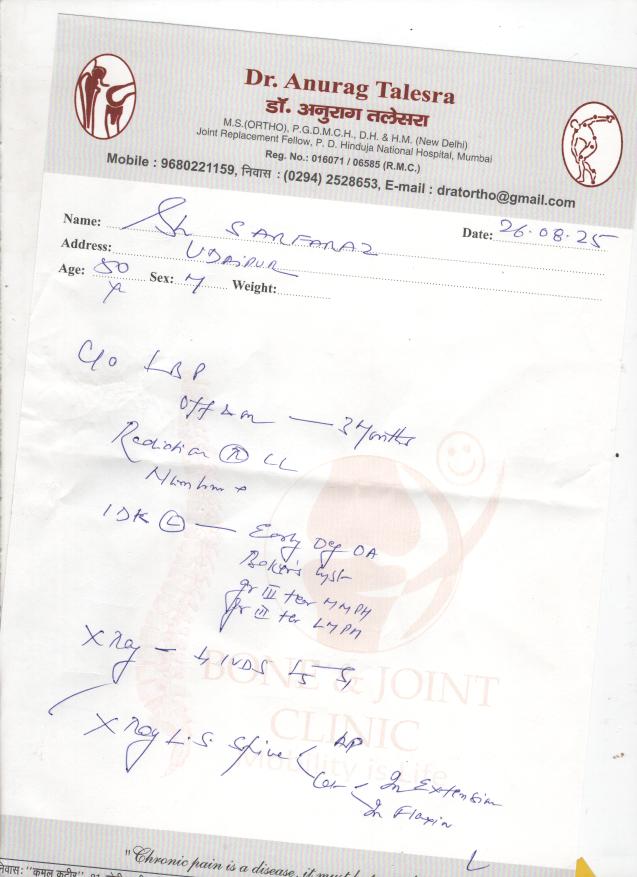 Dr. Anurag Talesra
डॉ. अनुराग तलेसरा
M.S.(ORTHO), P.G.D.M.C.H., D.H. & H.M. (New Delhi)
Joint Replacement Fellow, P. D. Hinduja National Hospital, Mumbai
Reg. No.: 016071 / 06585 (R.M.C.)
Mobile : 9680221159, निवास : (0294) 2528653, E-mail : dratortho@gmail.com
Name: Sh SARFARAZ Date: 26.08.25
Address: UDAIPUR
Age: 50 Sex: M Weight:
C/o LBP
Off & on — 3 Months
Radiation (R) LL
Numbness +
IDK (L) — Early Deg OA
Baker's Cyst
Gr III tear MMPH
Gr III tear LMPH
X Ray — ↓ IVDS L5-S1
BONE & JOINT
CLINIC
Mobility is Life
X Ray L.S. Spine AP
Lat In Extension
In Flexion
"Chronic pain is a disease, it must
निवास: "कमल कुटीर"